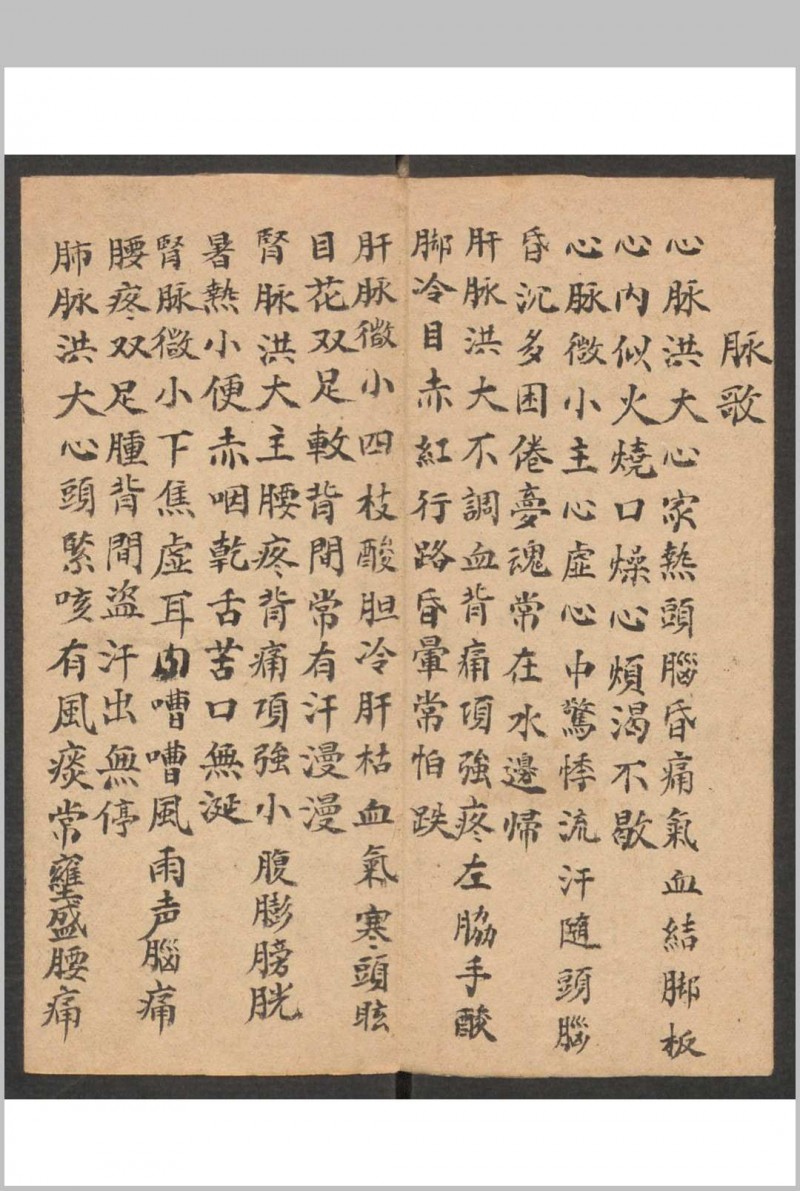 脉歌
心脉洪大心家热頭腦昏痛氣血結脚板
心内似火燒口燥心煩渴不歇
心脉微小主心虛心中驚悸流汗隨頭腦
昏沉多困倦夢魂常在水邊帰
肝脉洪大不調血背痛項強疼左脇手酸
脚冷目赤紅行路昏暈常怕跌
肝脉微小四枝酸胆冷肝枯血氣寒頭眩
目花双足軟背間常有汗漫漫
腎脉洪大主腰疼背痛項強小腹膨膀胱
暑熱小便赤咽乾舌苦口無涎
腎脉微小下焦虛耳内嘈嘈風雨声腦痛
腰疼双足腫背間盗汗出無停
肺脉洪大心頭緊咳有風痰常壅盛腰痛